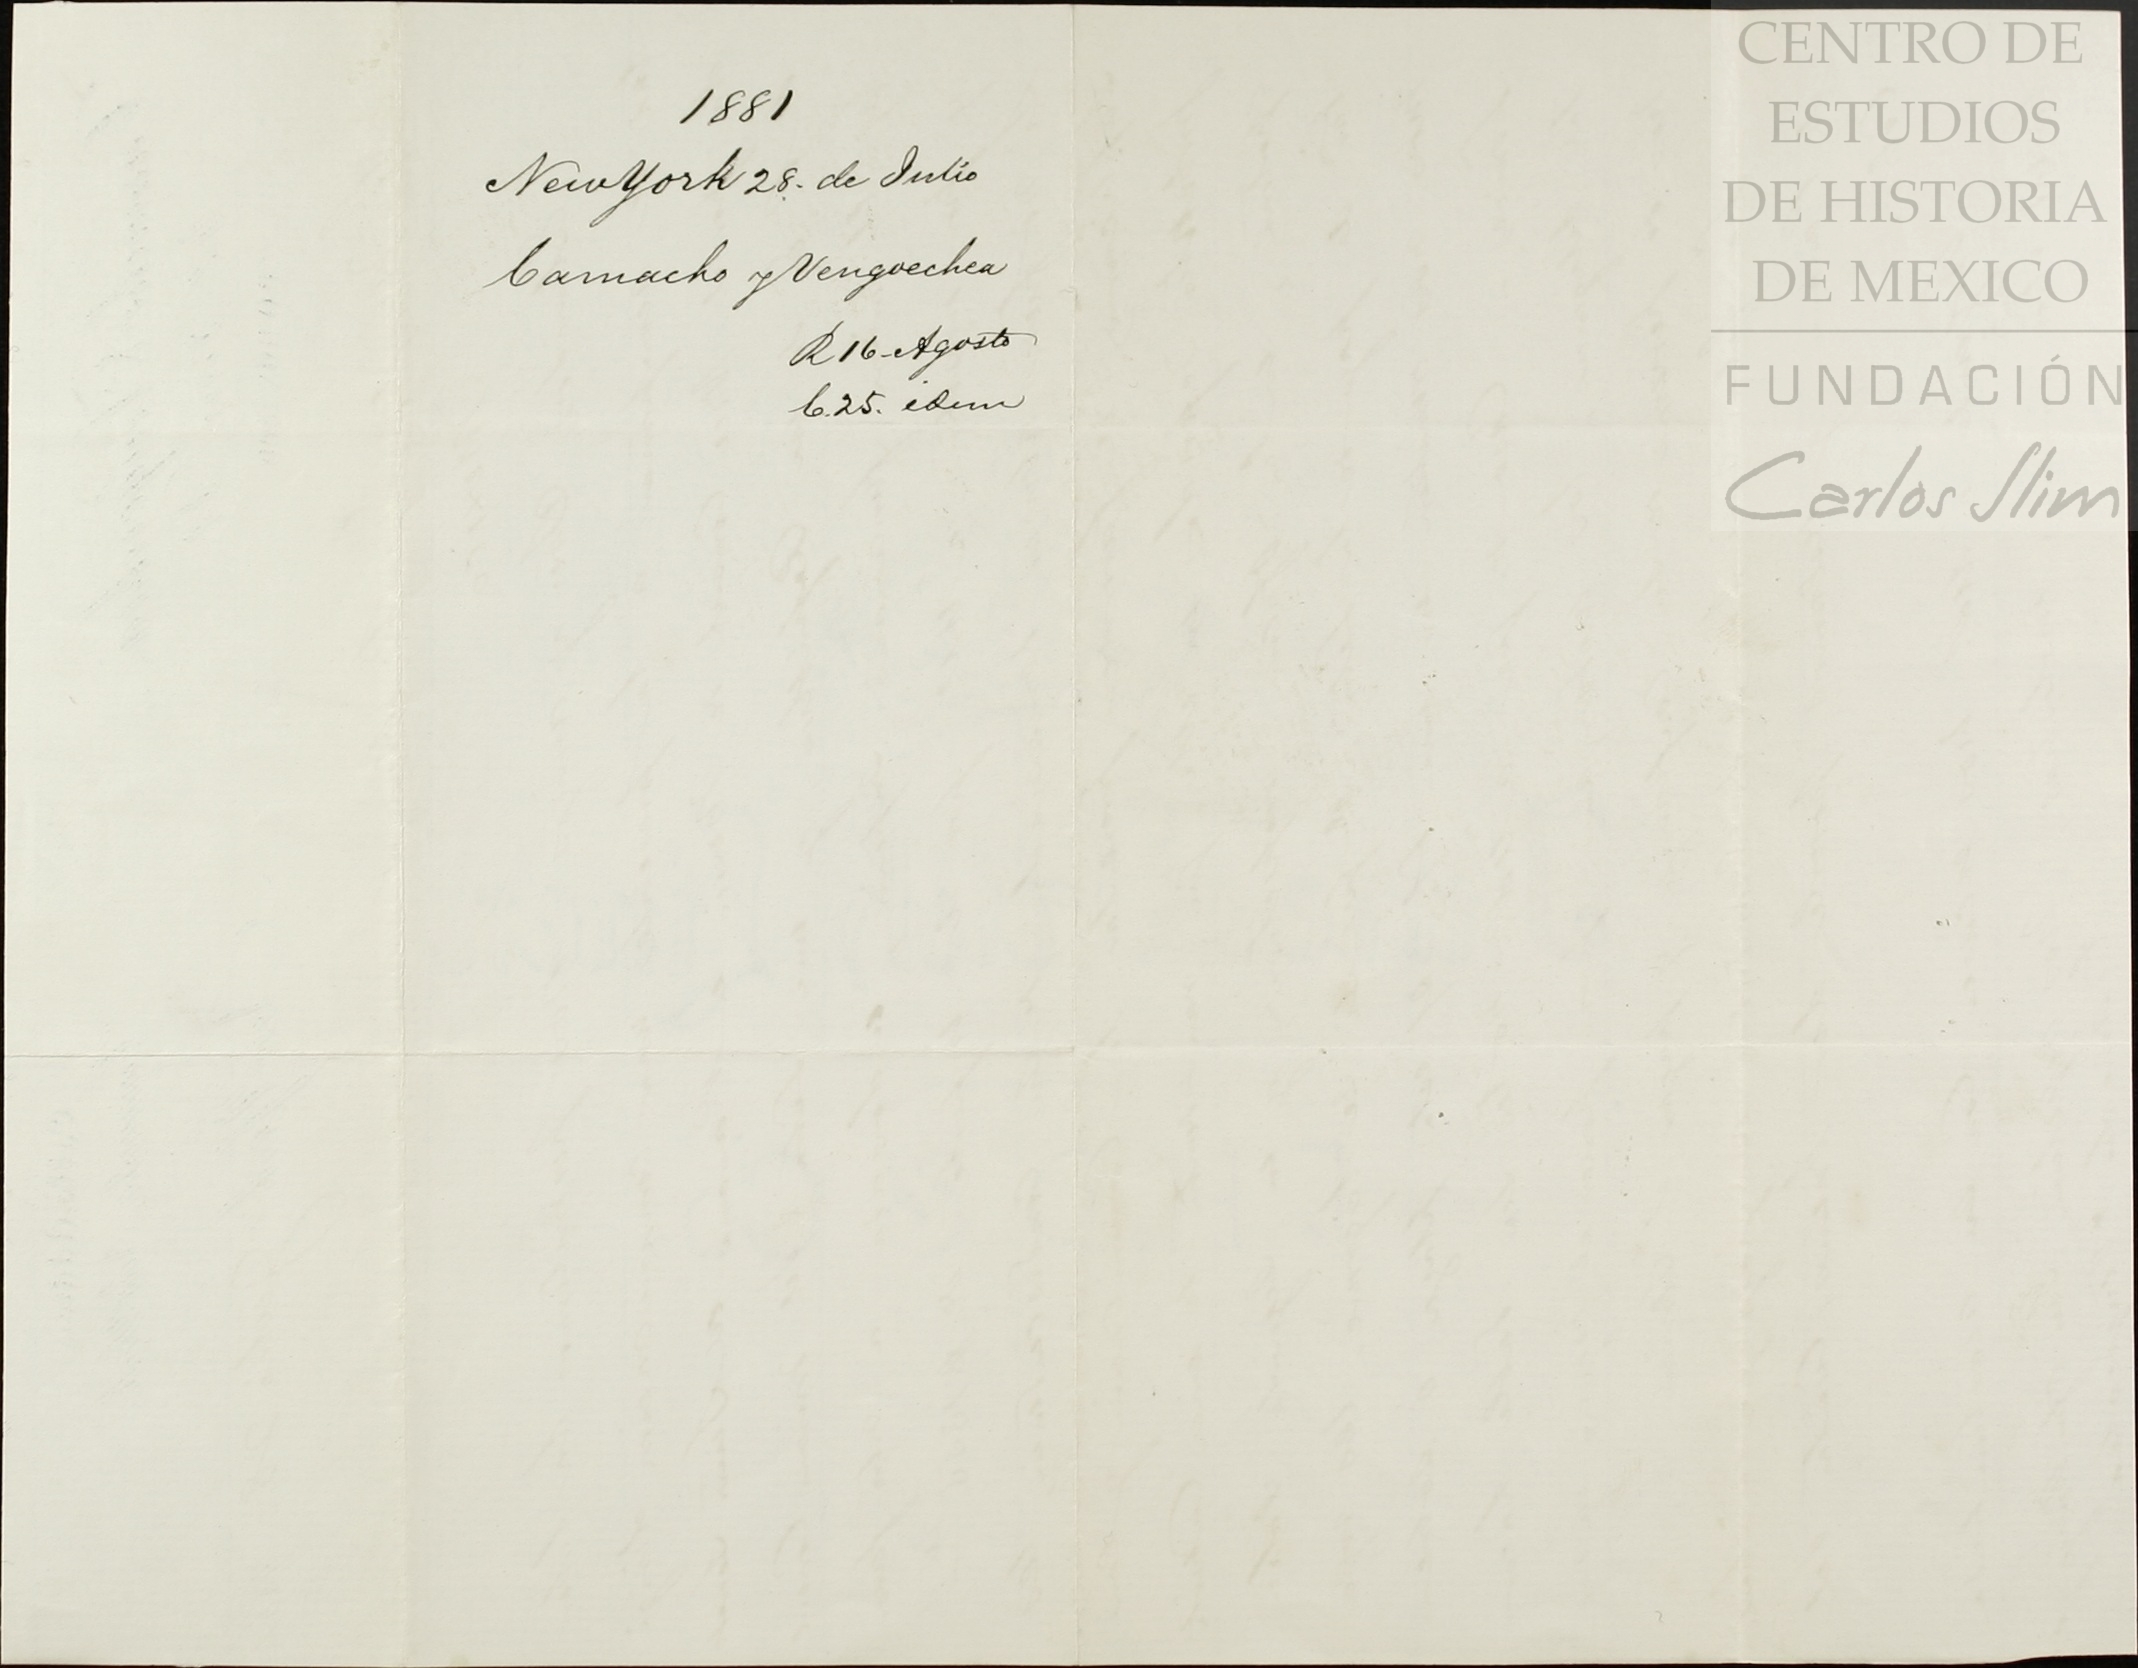 1881
New York 28. de Julio
Camacho y Vengoechea
R 16-Agosto
C. 25. idem
CENTRO DE
ESTUDIOS
DE HISTORIA
DE MEXICO
FUNDACIÓN
Carlos Slim